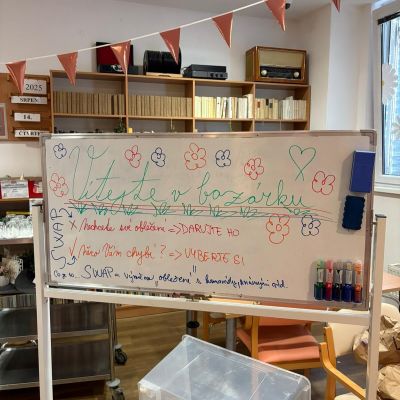 2025
SRPEN
14.
ČTVRTEK
Vítejte v bazárku
SWAP
X Nechcete své oblečení => DARUJTE HO
✓ Něco Vám chybí? => VYBERTE SI
Co je to SWAP = výměna „oblečení" s kamarády, známými atd.